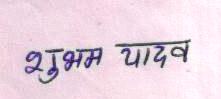 शुभम यादव